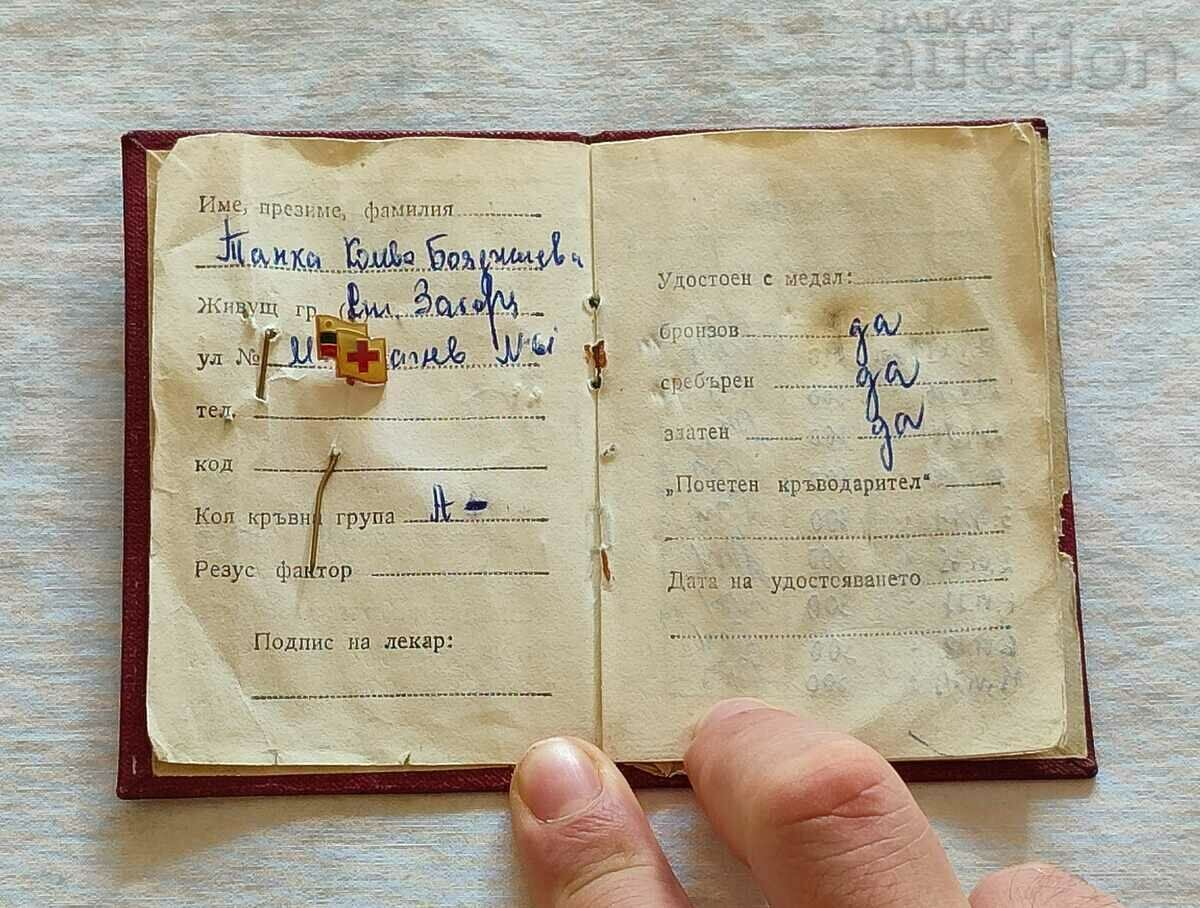 BALKAN
auction
Име, презиме, фамилия
Танка Колева Бояджиева
Живущ гр. Ст. Загора
ул №
тел.
код
Коя кръвна група А -
Резус фактор
Подпис на лекар:
Удостоен с медал:
бронзов да
сребърен да
златен да
„Почетен кръводарител“
Дата на удостояването